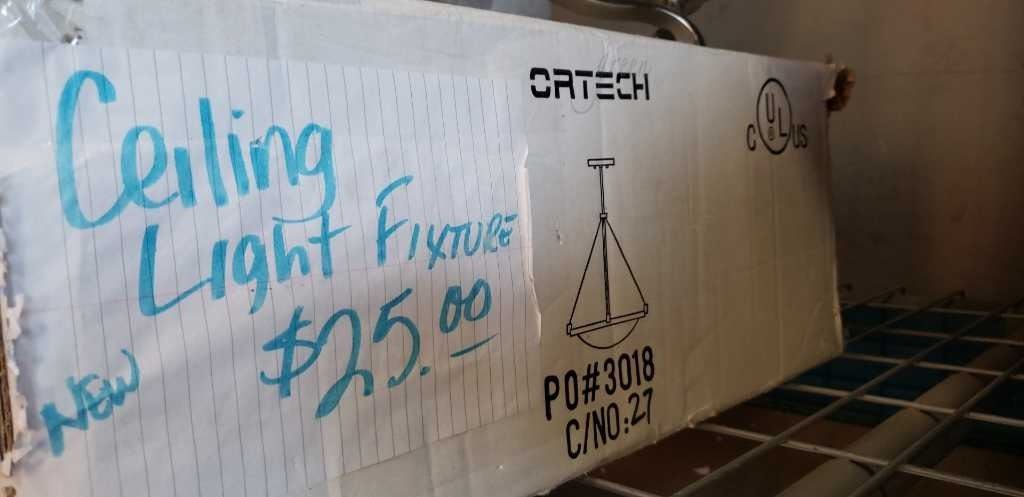 Ceiling
Light FIXTURE
$25.00
NEW
green
ORTECH
C UL US
PO#3018
C/NO:27